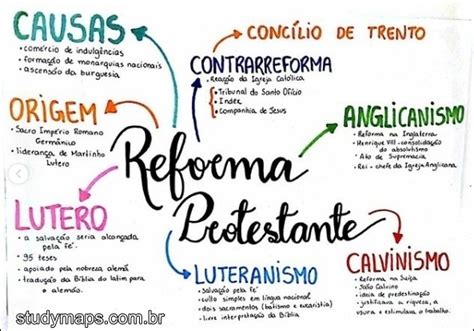 CAUSAS
• comércio de indulgências
• formação de monarquias nacionais
• ascensão da burguesia
CONCÍLIO DE TRENTO
CONTRARREFORMA
• Reação da Igreja Católica
• Tribunal do Santo Ofício
• Index
• Companhia de Jesus
ORIGEM
• Sacro Império Romano
Germânico
• liderança de Martinho
Lutero
ANGLICANISMO
• Reforma na Inglaterra
• Henrique VIII - consolidação
do absolutismo
• Ato de Supremacia
• Rei - chefe da Igreja Anglicana
Reforma
Protestante
LUTERO
• a salvação seria alcançada
pela fé.
• 95 teses
• apoiado pela nobreza alemã
• tradução da Bíblia do latim para
o alemão.
LUTERANISMO
• Salvação pela fé
• culto simples em língua nacional
• dois sacramentos (batismo e eucaristia)
• livre interpretação da Bíblia
CALVINISMO
• Reforma na Suíça
• João Calvino
• ideia de predestinação
• justificava a riqueza, a
usura e estimulava o trabalho.
studymaps.com.br